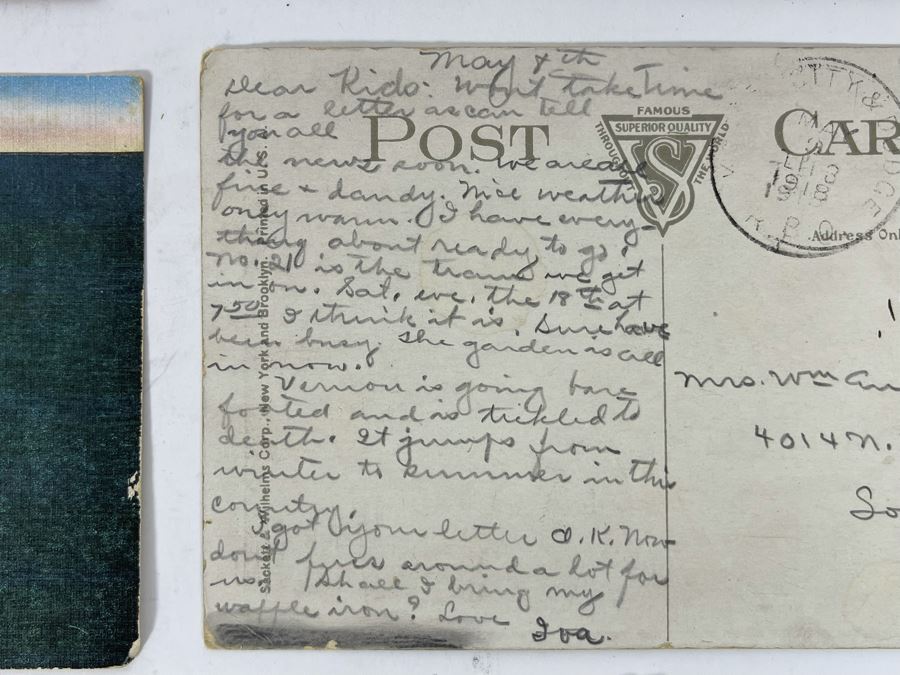 May 4th
Dear Kids: Won't take time
for a letter as can tell
you all
the news soon. We are all
fine & dandy. Nice weather
only warm. I have every-
thing about ready to go.
No. 21 is the train we get
in on. Sat. eve. the 18th at
7:50 I think it is. Sure have
been busy. The garden is all
in now.
Vernon is going bare
footed and is tickled to
death. It jumps from
winter to summer in this
country.
I got your letter O.K. Now
don't fuss around a lot for
us. Shall I bring my
waffle iron? Love
Iva.
POST CAR
FAMOUS
THROUGHOUT THE WORLD
SUPERIOR QUALITY
S
CITY &
DGE
MA
R.P.O.
Address Onl
Mrs. Wm
4014 N.
So
Sackett & Wilhelms Corp., New York and Brooklyn. Printed in U.S.